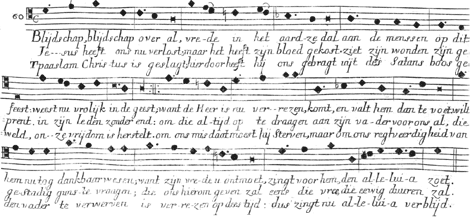 60
Blijdschap, blijdschap over al, vre-de in het aard-ze dal aan de menssen op dit
Je---sus heeft ons nu verlost, maar het heeft zijn bloed gekost, ziet zijn wonden zijn ge
Tpaaslam Chris-tus is geslagt, daar door heeft hij ons gebragt uijt des Satans boos ge-
feest: weest nu vrolijk in de geest; want de Heer is nu ver--rezen, komt, en valt hem dan te voet wilt
prent, in zijn leden zonder end; om die al-tijd op te draagen aan zijn va-der voor ons al, die
weld, on--ze vrijdom is herstelt, om ons misdaat moest hij sterven, maar om ons regtveerdigheid van
hem nu tog dankbaar wesen, want zijn vre-de u ontmoet, zingt voor hem, den al-le-lui-a zoet.
gestadig gunst te vraagen; die ons hierom geven zal eens die vre, die eewig duuren zal.
den vader te verwerven is ver-re-zen op dees tijd; dus zingt nu al-le-lui-a verblijd.